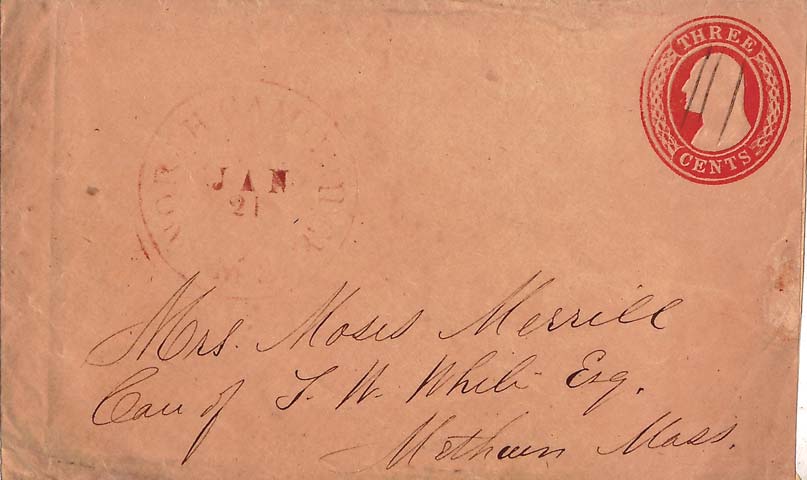 THREE
CENTS
NORTH CAMBRIDGE
JAN
21
Mrs. Moses Merrill
Care of J. W. White Esq.
Methuen Mass.